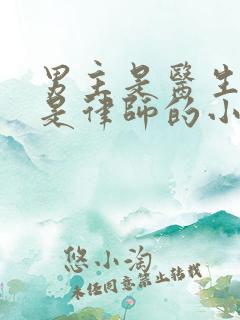 男主是醫生
是律師的小
悠小淘
未任同意禁止转载